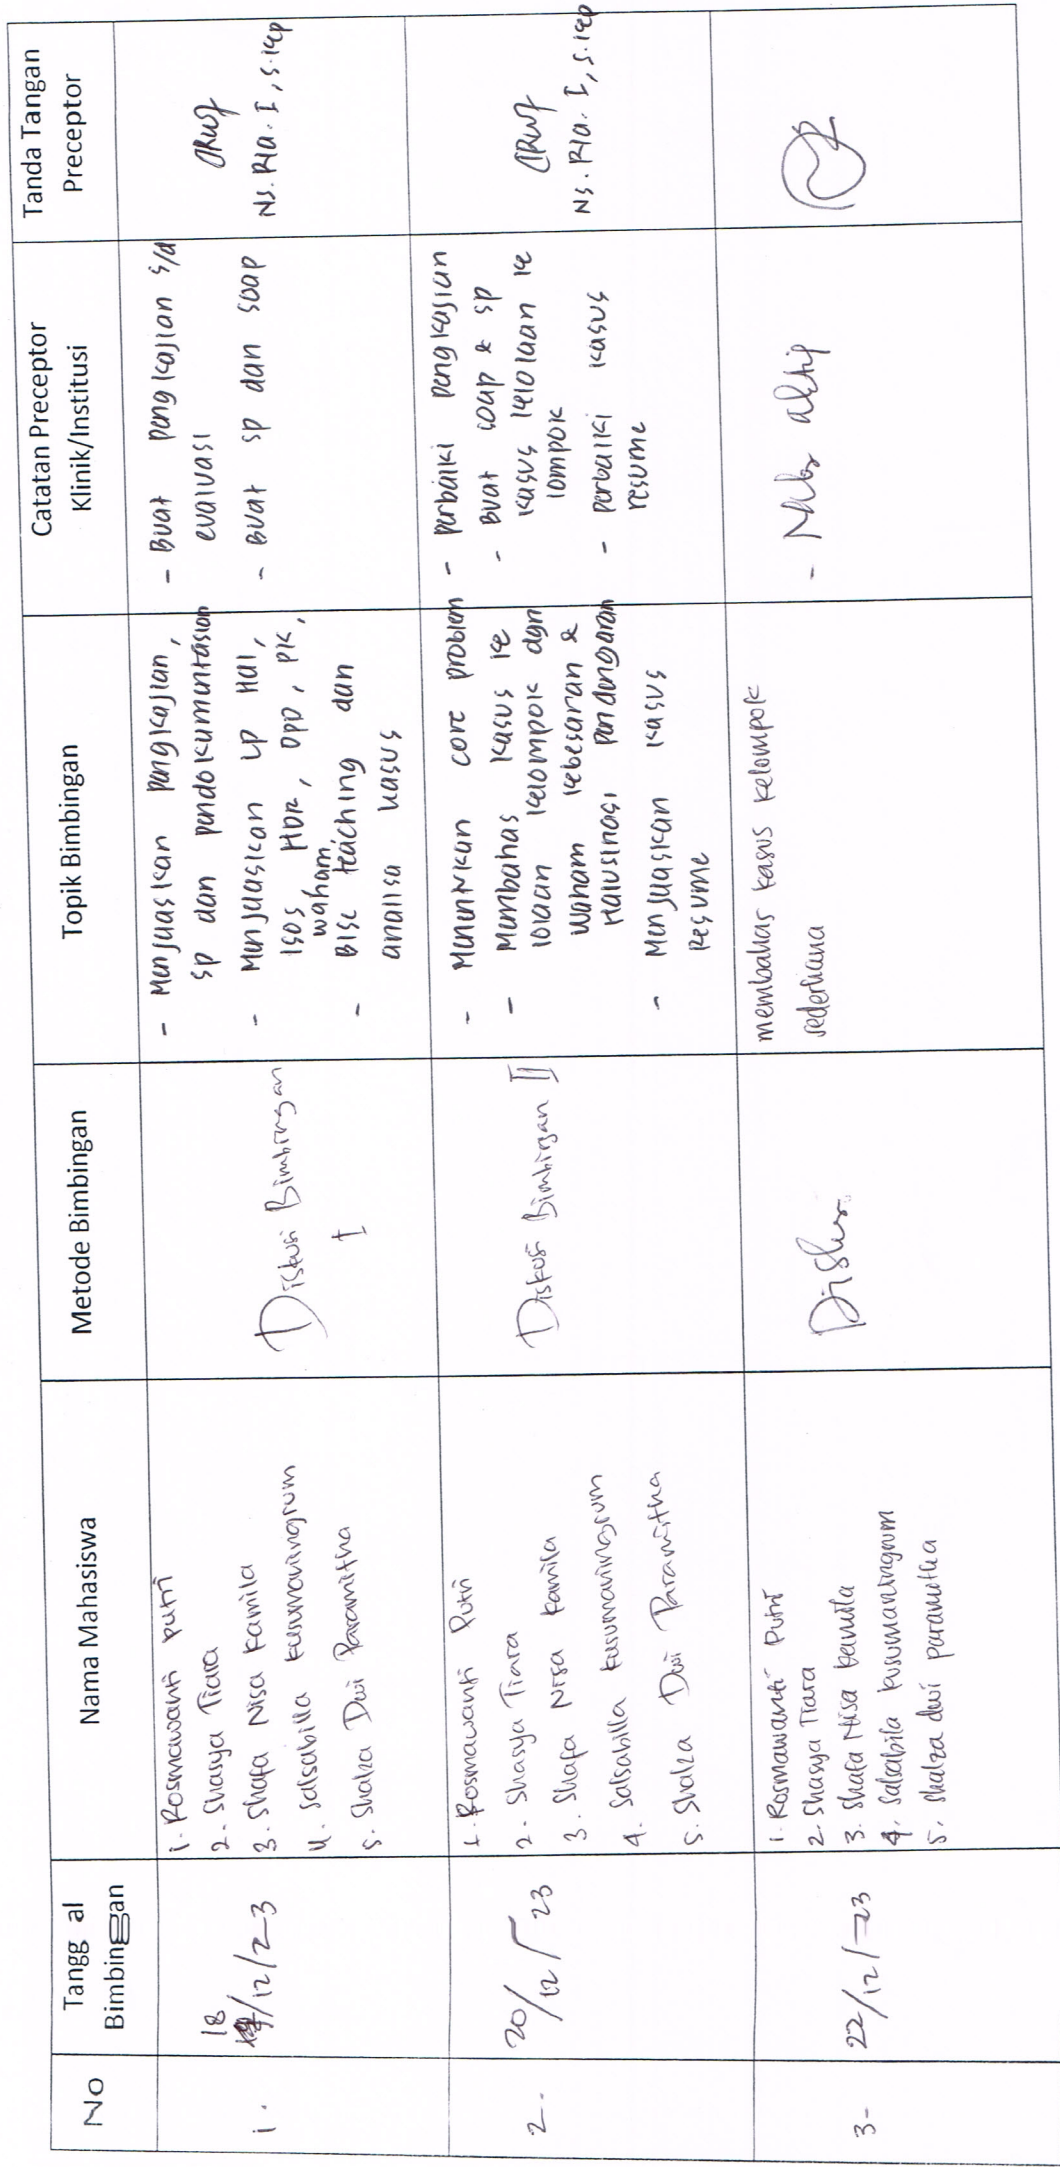 No
Tangg al
Bimbingan
Nama Mahasiswa
Metode Bimbingan
Topik Bimbingan
Catatan Preceptor
Klinik/Institusi
Tanda Tangan
Preceptor
1.
18
/12/23
1. Rosmawanti putri
2. Shasya Tiara
3. Shafa Nisa Kamila
4. Salsabilla kusumaningrum
5. Shalza Dwi Paramitha
Diskusi Bimbingan
I
- Menjelaskan pengkajian,
sp dan pendokumentasian
- Menjelaskan LP Hal,
ISOS, HDR, DPD, PK,
waham,
- Bisc teaching dan
analisa kasus
- Buat pengkajian s/d
evaluasi
- Buat sp dan soap
Ns. Ria. I, S.kep
2.
20/12/23
1. Rosmawanti Putri
2. Shasya Tiara
3. Shafa Nisa Kamila
4. Salsabilla kusumaningrum
5. Shalza Dwi Paramitha
Diskusi Bimbingan II
- Menentukan core problem
- Membahas kasus ke
lolaan kelompok dgn
waham kebesaran &
Halusinasi pendengaran
- Menjelaskan kasus
Resume
- perbaiki pengkajian
- Buat soap & sp
kasus kelolaan ke
lompok
- perbaiki kasus
resume
Ns. Ria. I, S.kep
3-
22/12/23
1. Rosmawanti Putri
2. Shasya Tiara
3. Shafa Nisa kamila
4. Salsabila kusumaningrum
5. shalza dwi paramitha
Diskusi
membahas kasus kelompok
sederhana
- Mhs aktif